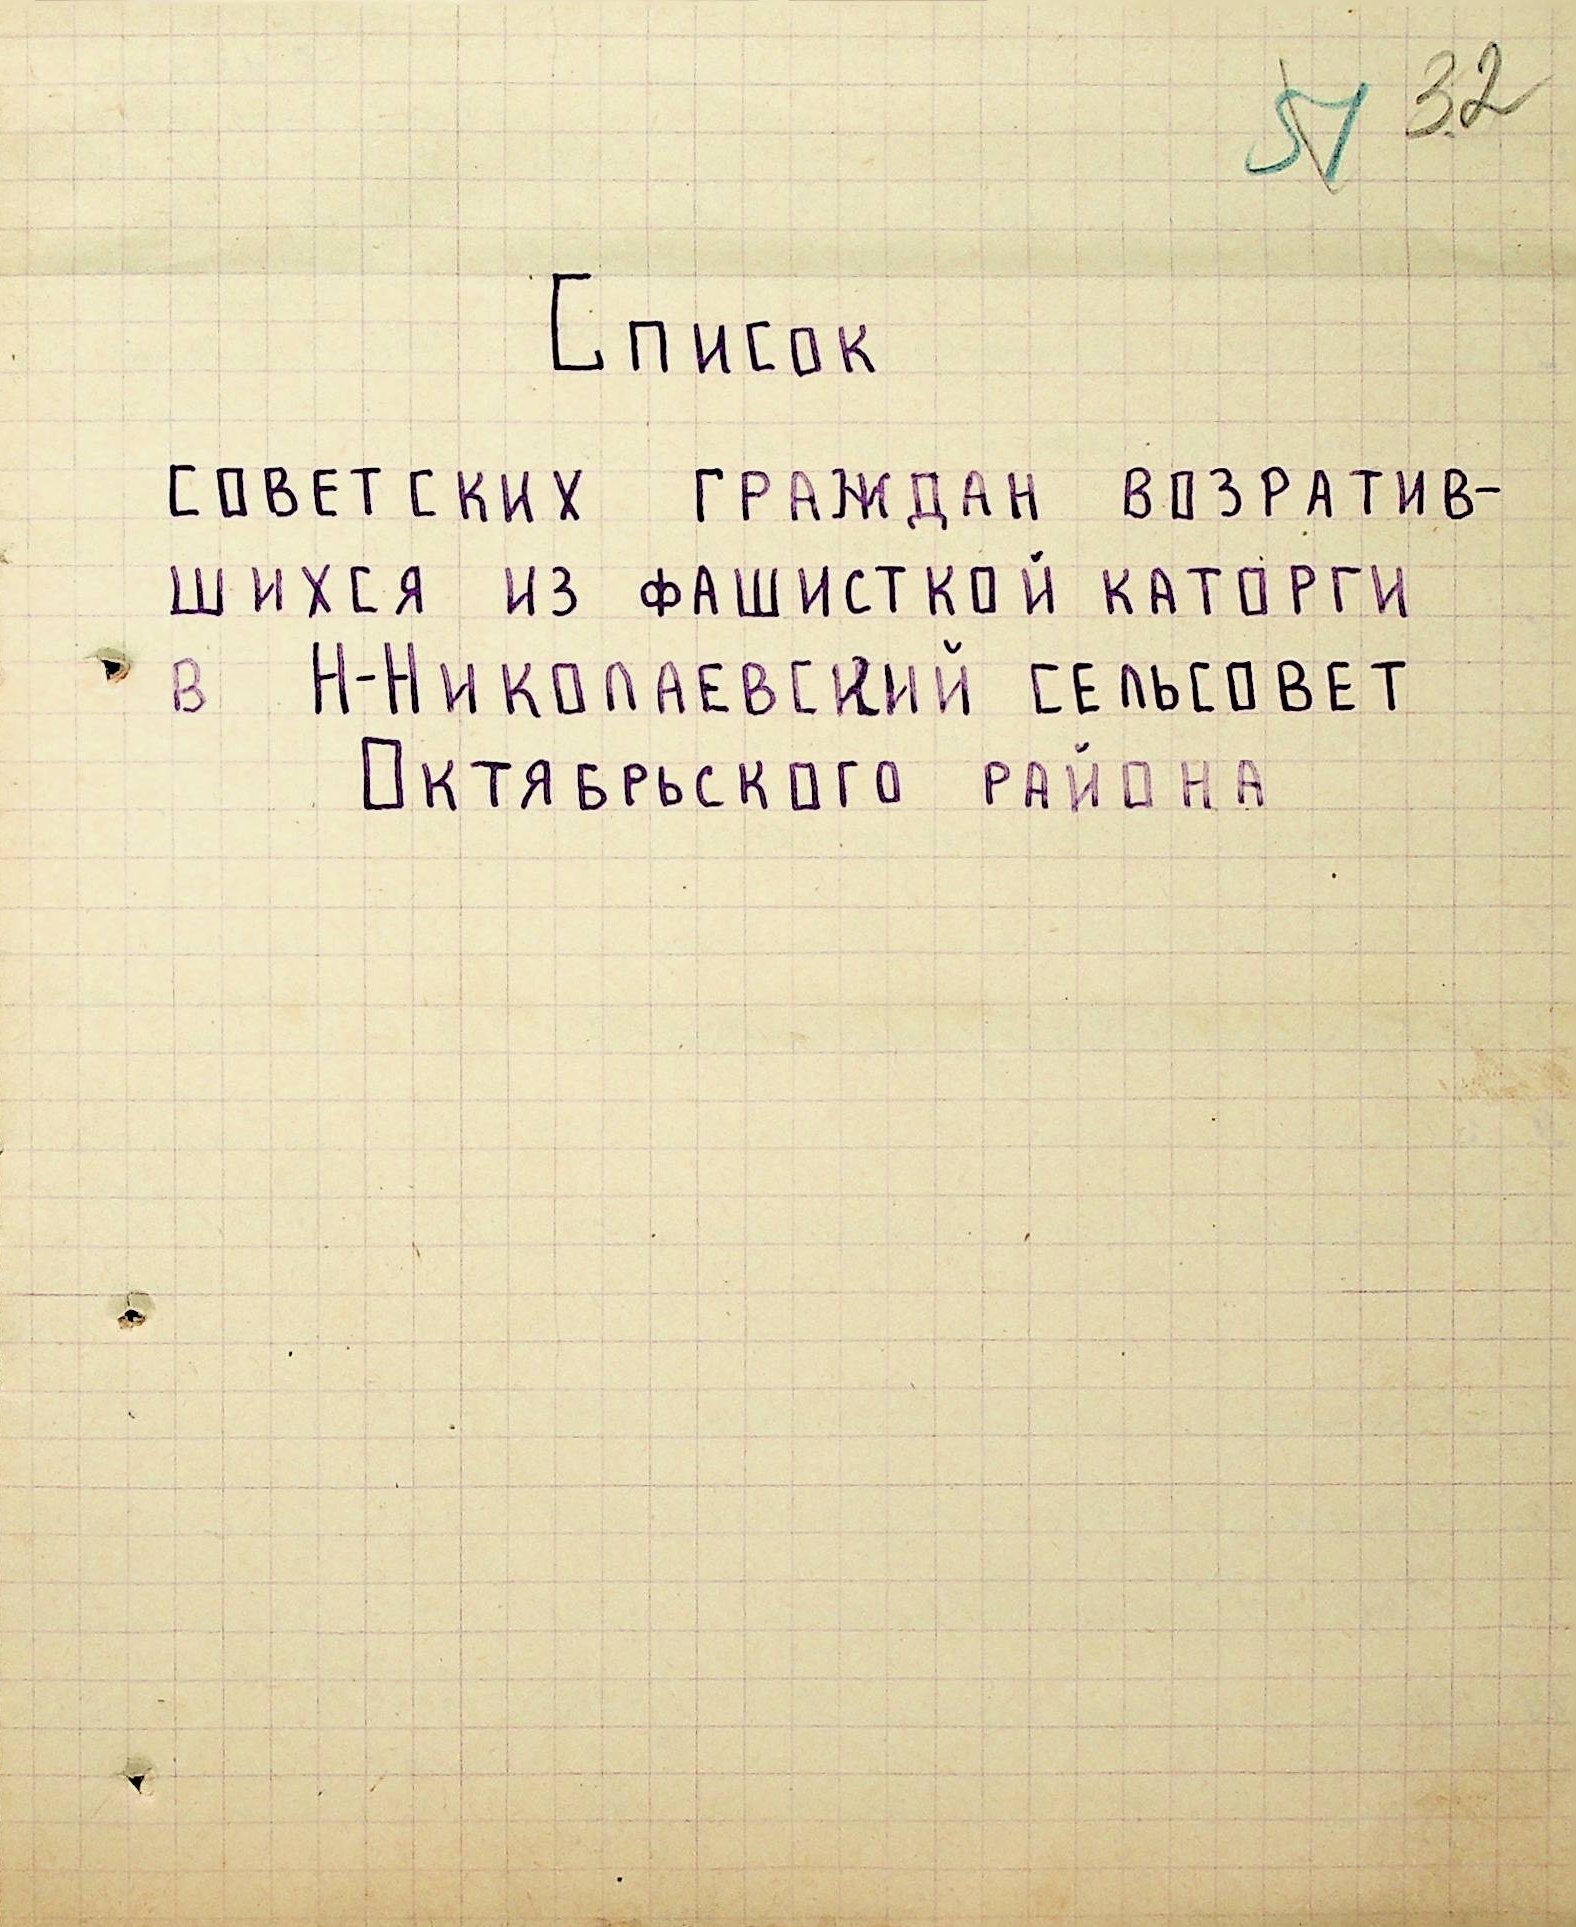 57 32
Список
советских граждан возратив-
шихся из фашисткой каторги
в Н-Николаевский сельсовет
Октябрьского района